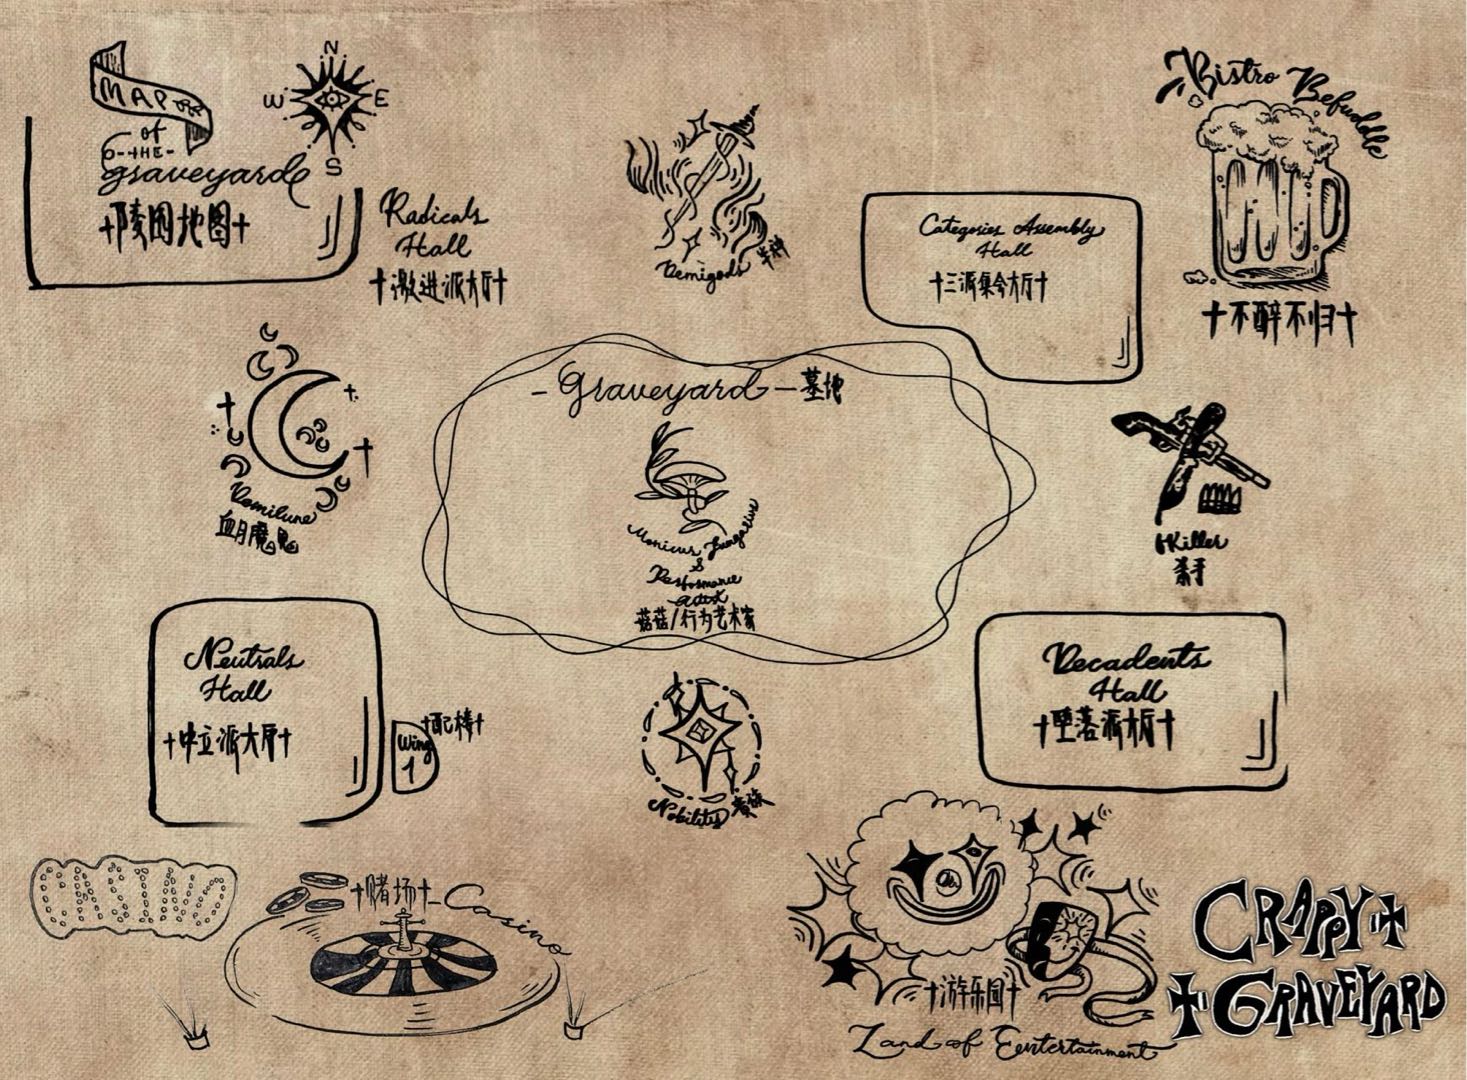 MAP
of
-THE-
graveyard
陵园地图
N
W
E
S
Radicals
Hall
激进派大厅
Demigods
半神
Categories Assembly
Hall
三派集会大厅
Bistro Befuddle
不醉不归
Demilune
血月魔鬼
- Graveyard - 墓地
Monicus Fungarius
&
Performance
Artist
菇菇/行为艺术家
Killer
杀手
Neutrals
Hall
中立派大厅
配楼
Wing
1
Nobilities
贵族
Decadents
Hall
堕落派大厅
CASINO
赌场
Casino
游乐园
Land of Eentertainment
CRAPPY
GRAVEYARD